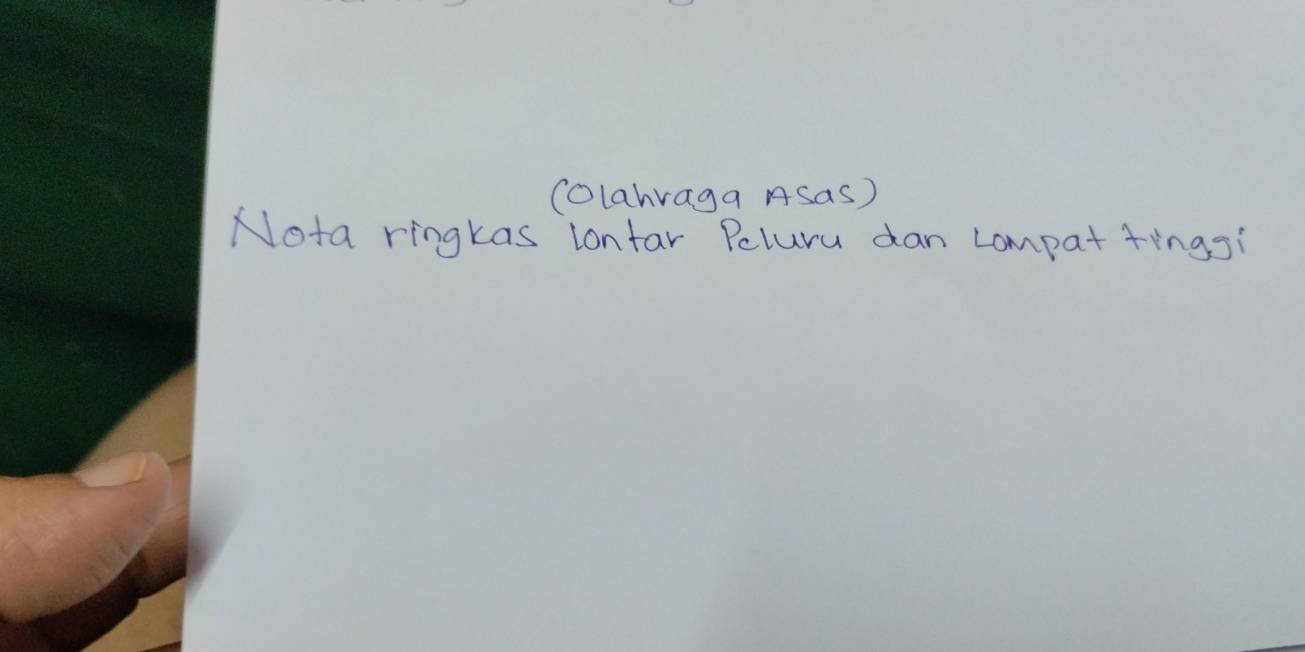 (Olahraga Asas)
Nota ringkas lontar Peluru dan Lompat tinggi